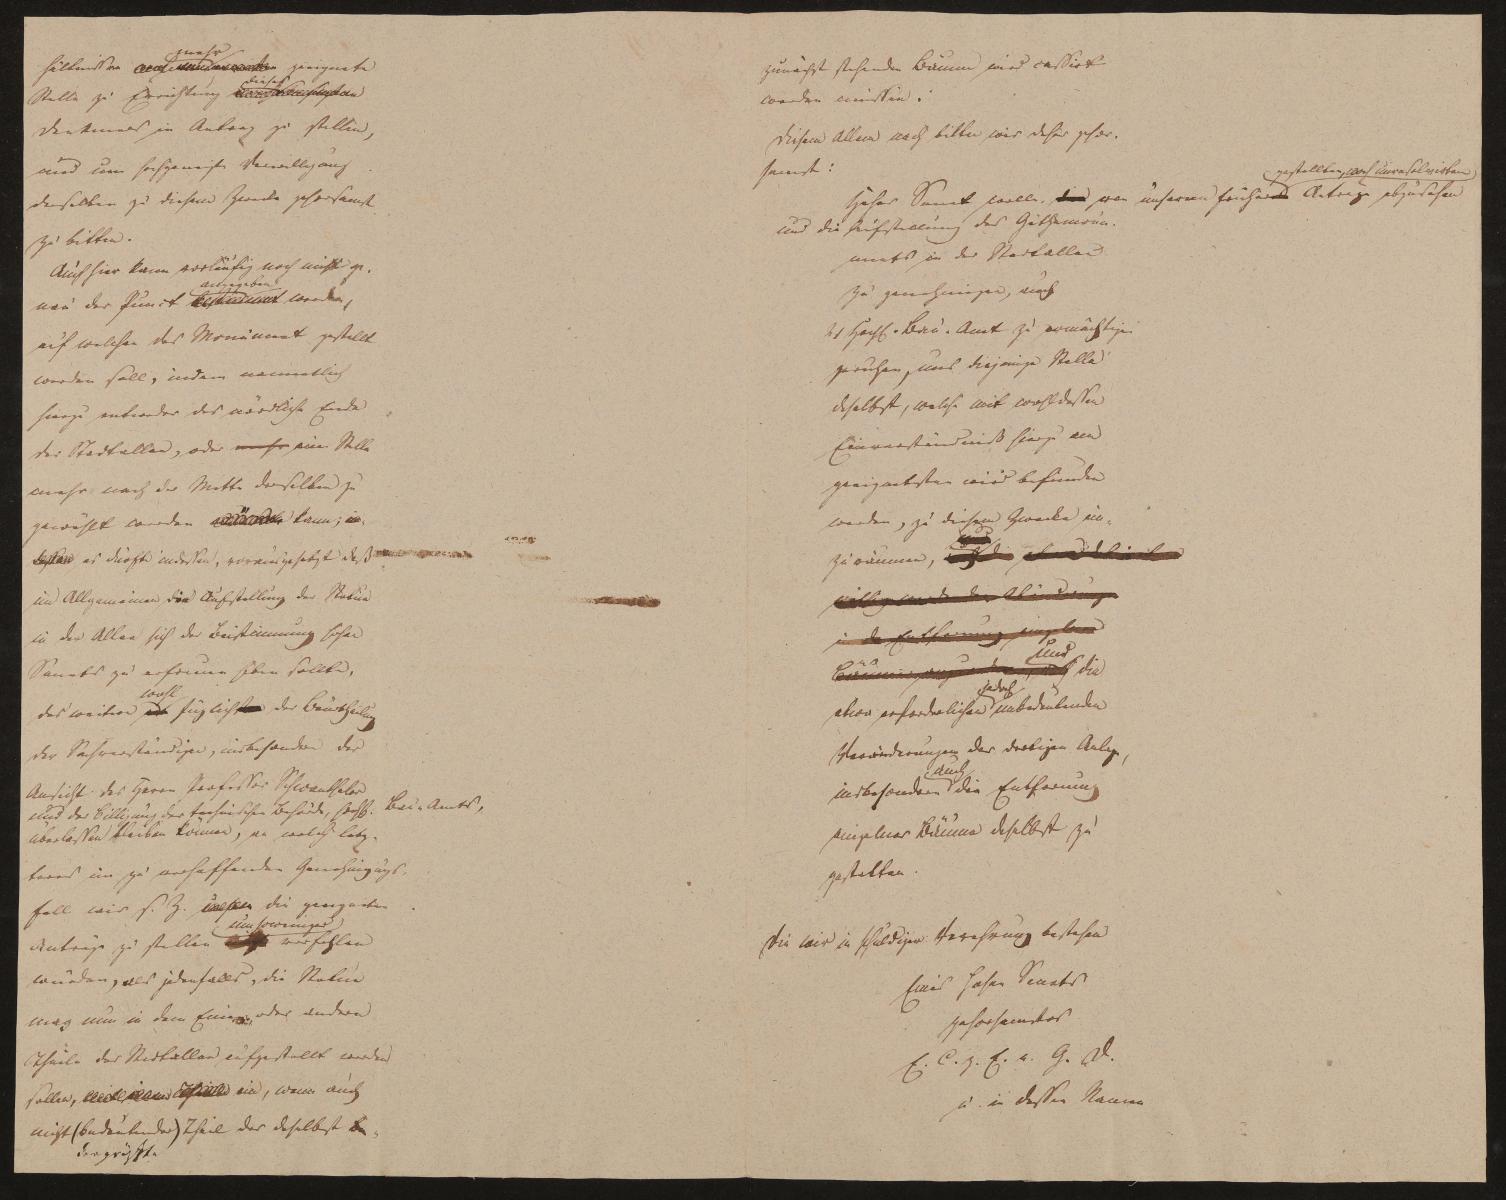 hältnissen mehr geeignete
Stelle zu Errichtung dieses
Denkmals in Antrag zu stellen,
und um hochgeneigte Bewilligung
derselben zu diesem Zwecke gehorsamst
zu bitten.
Auch hier kann vorläufig noch nicht ge-
nau der Punct angegeben werden,
auf welchen das Monument gestellt
werden soll, indem namentlich
hierzu entweder das nördliche Ende
der Stadtallee, oder mehr eine Stelle
mehr nach der Mitte derselben zu
gewählt werden kann; in-
dessen es dürfte indessen, vorausgesetzt daß
im Allgemeinen die Aufstellung der Statue
in der Allee sich der Beistimmung hohen
Senats zu erfreuen haben sollte,
das weitere wohl füglich der Beurtheilung
der Sachverständigen, insbesondere der
Ansicht des Herrn Professor Schwanthaler
und der Billigung der technischen Behörde, hochl. Bau-Amts,
überlassen bleiben können, an welch letz-
teres im zu verhoffenden Genehmigungs-
fall wir s. Z. die geeigneten
Anträge zu stellen umsoweniger verfehlen
würden, als jedenfalls, die Statue
mag nun in dem Einen oder andern
Theile der Stadtallee aufgestellt werden
sollen, ein, wenn auch
nicht (bedeutender) Theil der daselbst
zunächst stehenden Bäume wird cassirt
werden müssen.
Diesem Allem nach bitten wir daher gehor-
samst:
gestellten, noch unresolvirten
Hoher Senat wolle von unserem früher Antrage abzusehen
und die Aufstellung des Göthemonu-
ments in der Stadtallee
zu genehmigen, auch
löbl. Hochl. Bau-Amt zu ermächtigen
geruhen, uns diejenige Stelle
daselbst, welche mit wohldessen
Einverständniß hierzu am
geeignetsten wird befunden
werden, zu diesem Zwecke ein-
zuräumen,
und die
etwa erforderlichen jedoch unbedeutenden
Veränderungen der dortigen Anlage,
insbesondere auch die Entfernung
einzelner Bäume daselbst zu
gestatten.
Die wir in schuldiger Verehrung bestehen
Eines hohen Senats
gehorsamstes
E. C. z. E. e. G. D.
u. in dessen Namen